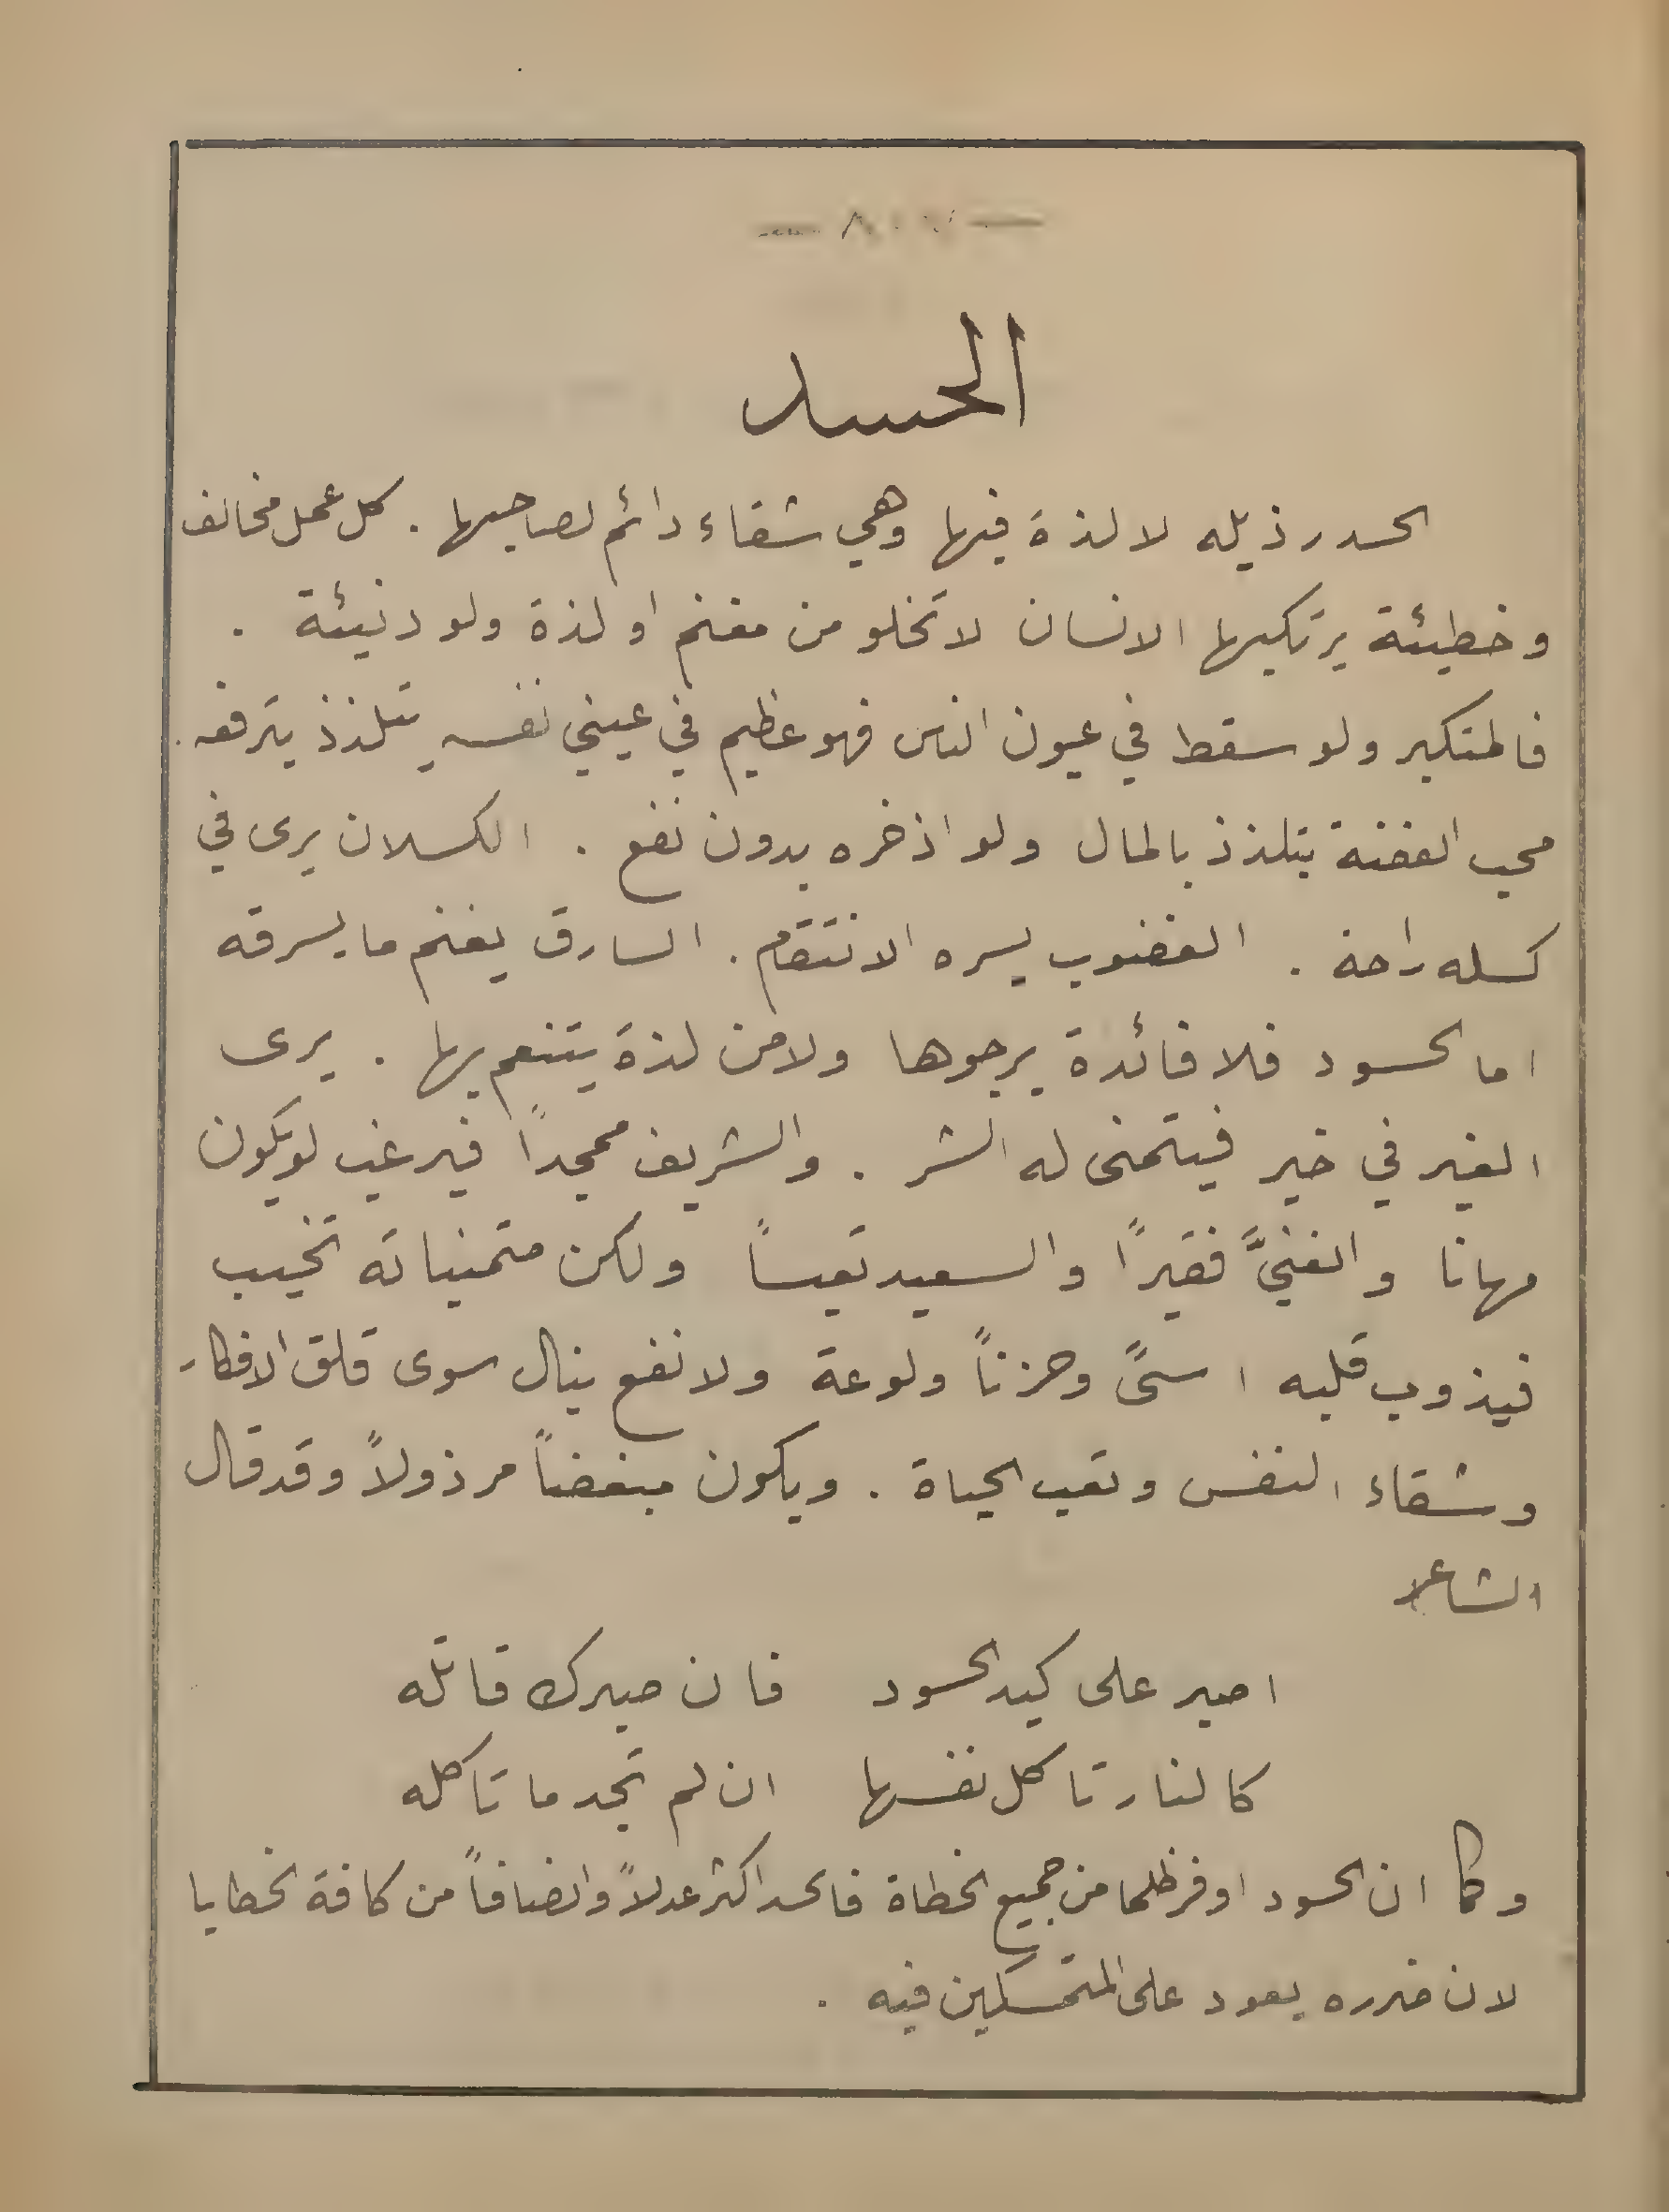 الحسد
الحسد رذيله لا لذة فيها وهي شقاء دائم لصاحبها . كل عمل مخالف
وخطيئة يرتكبها الانسان لا تخلو من مغنم او لذة ولو دنيئة .
فالمتكبر ولو سقط في عيون الناس فهو عظيم في عيني نفسه يتلذذ بترفعه .
محب الفضة يتلذذ بالمال ولو اذخره بدون نفع . الكسلان يرى في
كسله راحة . الغضوب يسره الانتقام . السارق يغنم ما يسرقه
اما الحسود فلا فائدة يرجوها ولا من لذة يتنعم بها . يرى
الغير في خير فيتمنى له الشر . والشريف ممجداً فيرغب لو يكون
مهانا والغنيَّ فقيراً والسعيد تعيساً ولكن متمنياته تخيب
فيذوب قلبه اسىً وحزناً ولوعة ولا نفع ينال سوى قلق الافكار
وشقاء النفس وتعب الحياة . ويكون مبغضاً مرذولاً وقد قال
الشاعر
اصبر على كيد الحسود فان صبرك قاتله
كالنار تاكل نفسها ان لم تجد ما تاكله
وكما ان الحسود اوفر ظلما من جميع الخطاة فالحسد اكثر عدلاً وانصافاً من كافة الخطايا
لان ضرره يعود على المتمسكين فيه .